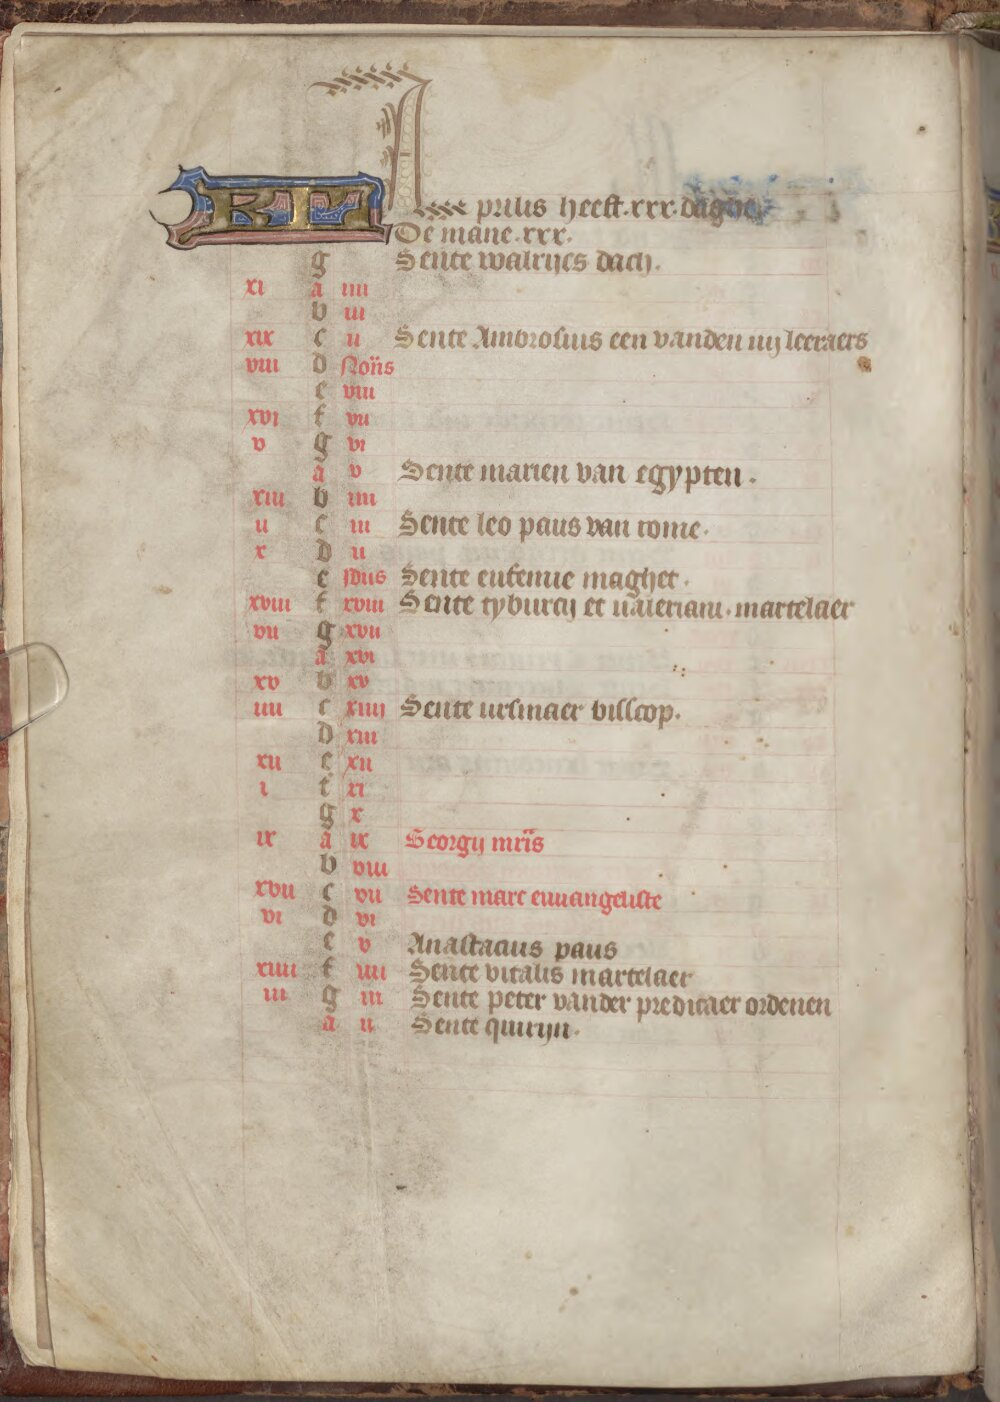 KL Aprilis heeft .xxx. daghe
De mane .xxx.
g Sente walrijcs dach.
xi a iiii
b iii
xix c ii Sente Ambrosius een vanden iiij leeraers
viii d Nonis
e viii
xvi f vii
v g vi
a v Sente marien van egypten .
xiii b iiii
ii c iii Sente leo paus van rome .
x d ii
e jdus Sente eufemie maghet .
xviii f xviii Sente tyburcij et valeriani . martelaer
vii g xvii
a xvi
xv b xv
iiii c xiiij Sente ursmaer bisscop .
d xiii
xii e xii
i f xi
g x
ix a ix Georgij mris
b viii
xvii c vii Sente marc euuangeliste
vi d vi
e v Anastacius paus
xiiii f iiii Sente vitalis martelaer
iii g iii Sente peter vander predicaer ordenen
a ii Sente quirijn .